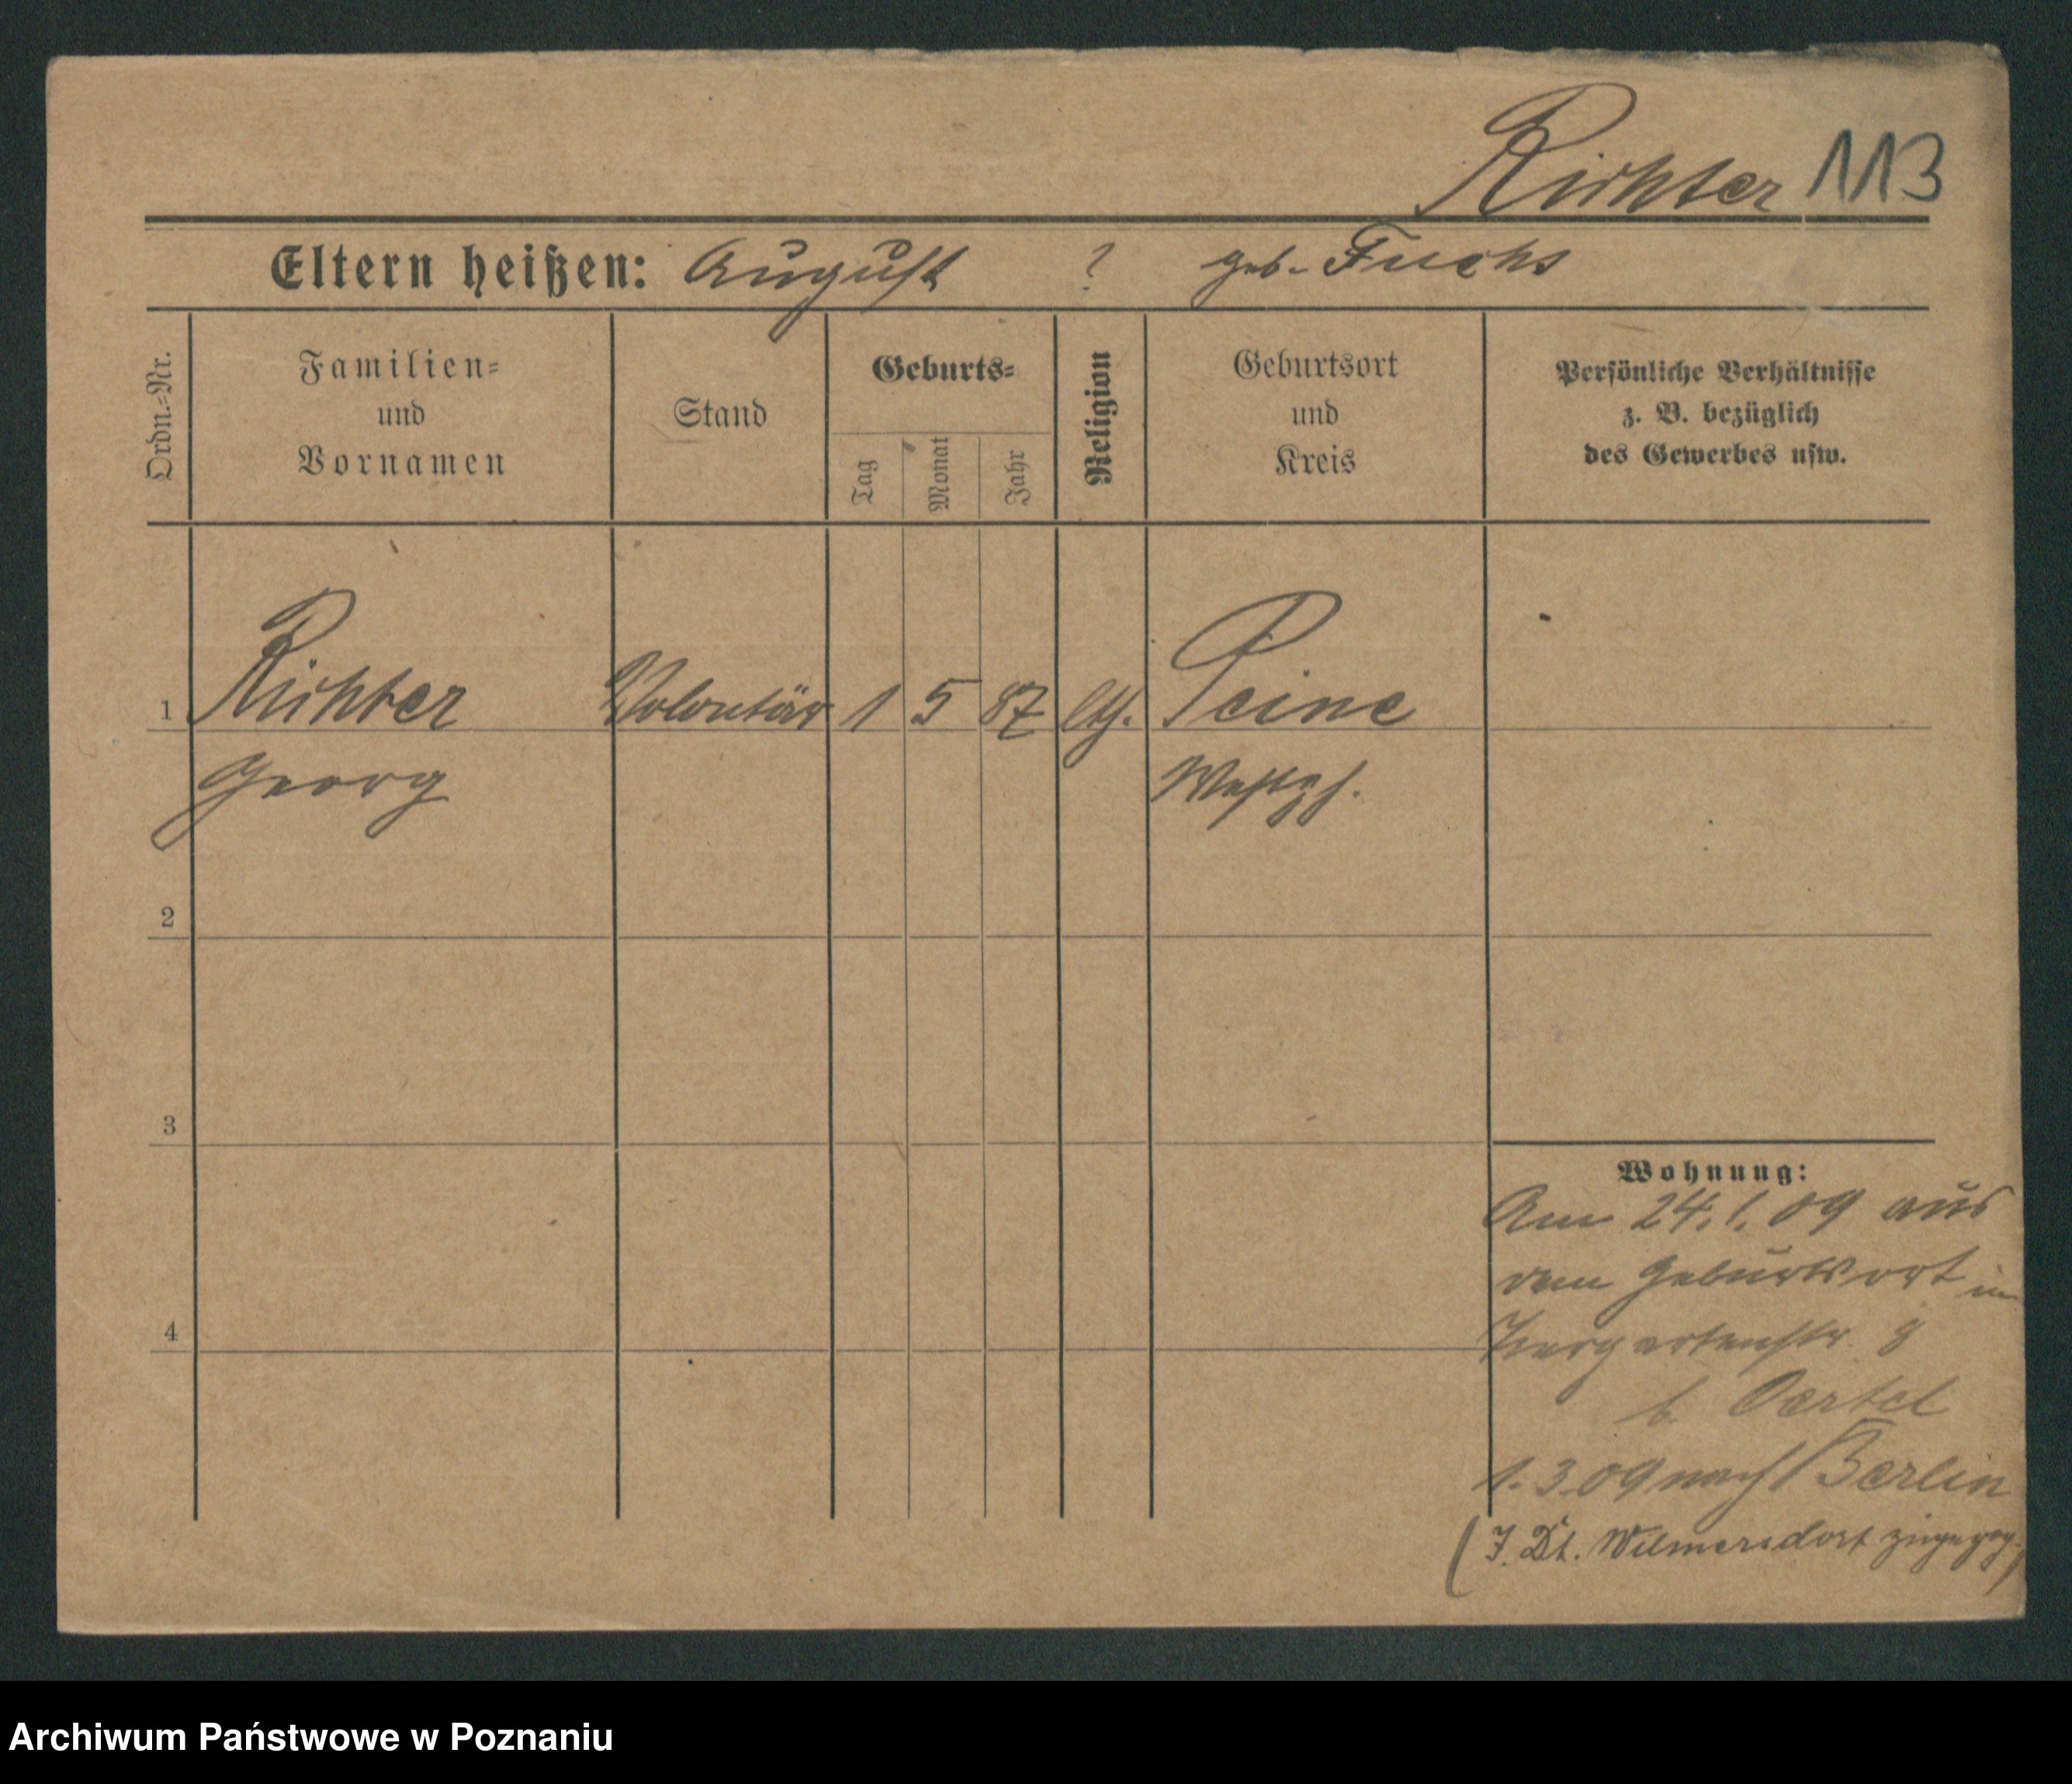 Richter 113
Eltern heißen: August ? geb. Fuchs
Ordn.-Nr.
Familien-
und
Vornamen
Stand
Geburts-
Tag
Monat
Jahr
Religion
Geburtsort
und
Kreis
Persönliche Verhältnisse
z. B. bezüglich
des Gewerbes usw.
1 Richter Volontär 1 5 87 Peine
Georg
2
3
4
Wohnung:
Am 24.1.09 aus
dem Geburtsort in
8
b. Oertel
1.3.09 nach Berlin
(J. Dt. Wilmersdorf zugezog.)
Archiwum Państwowe w Poznaniu